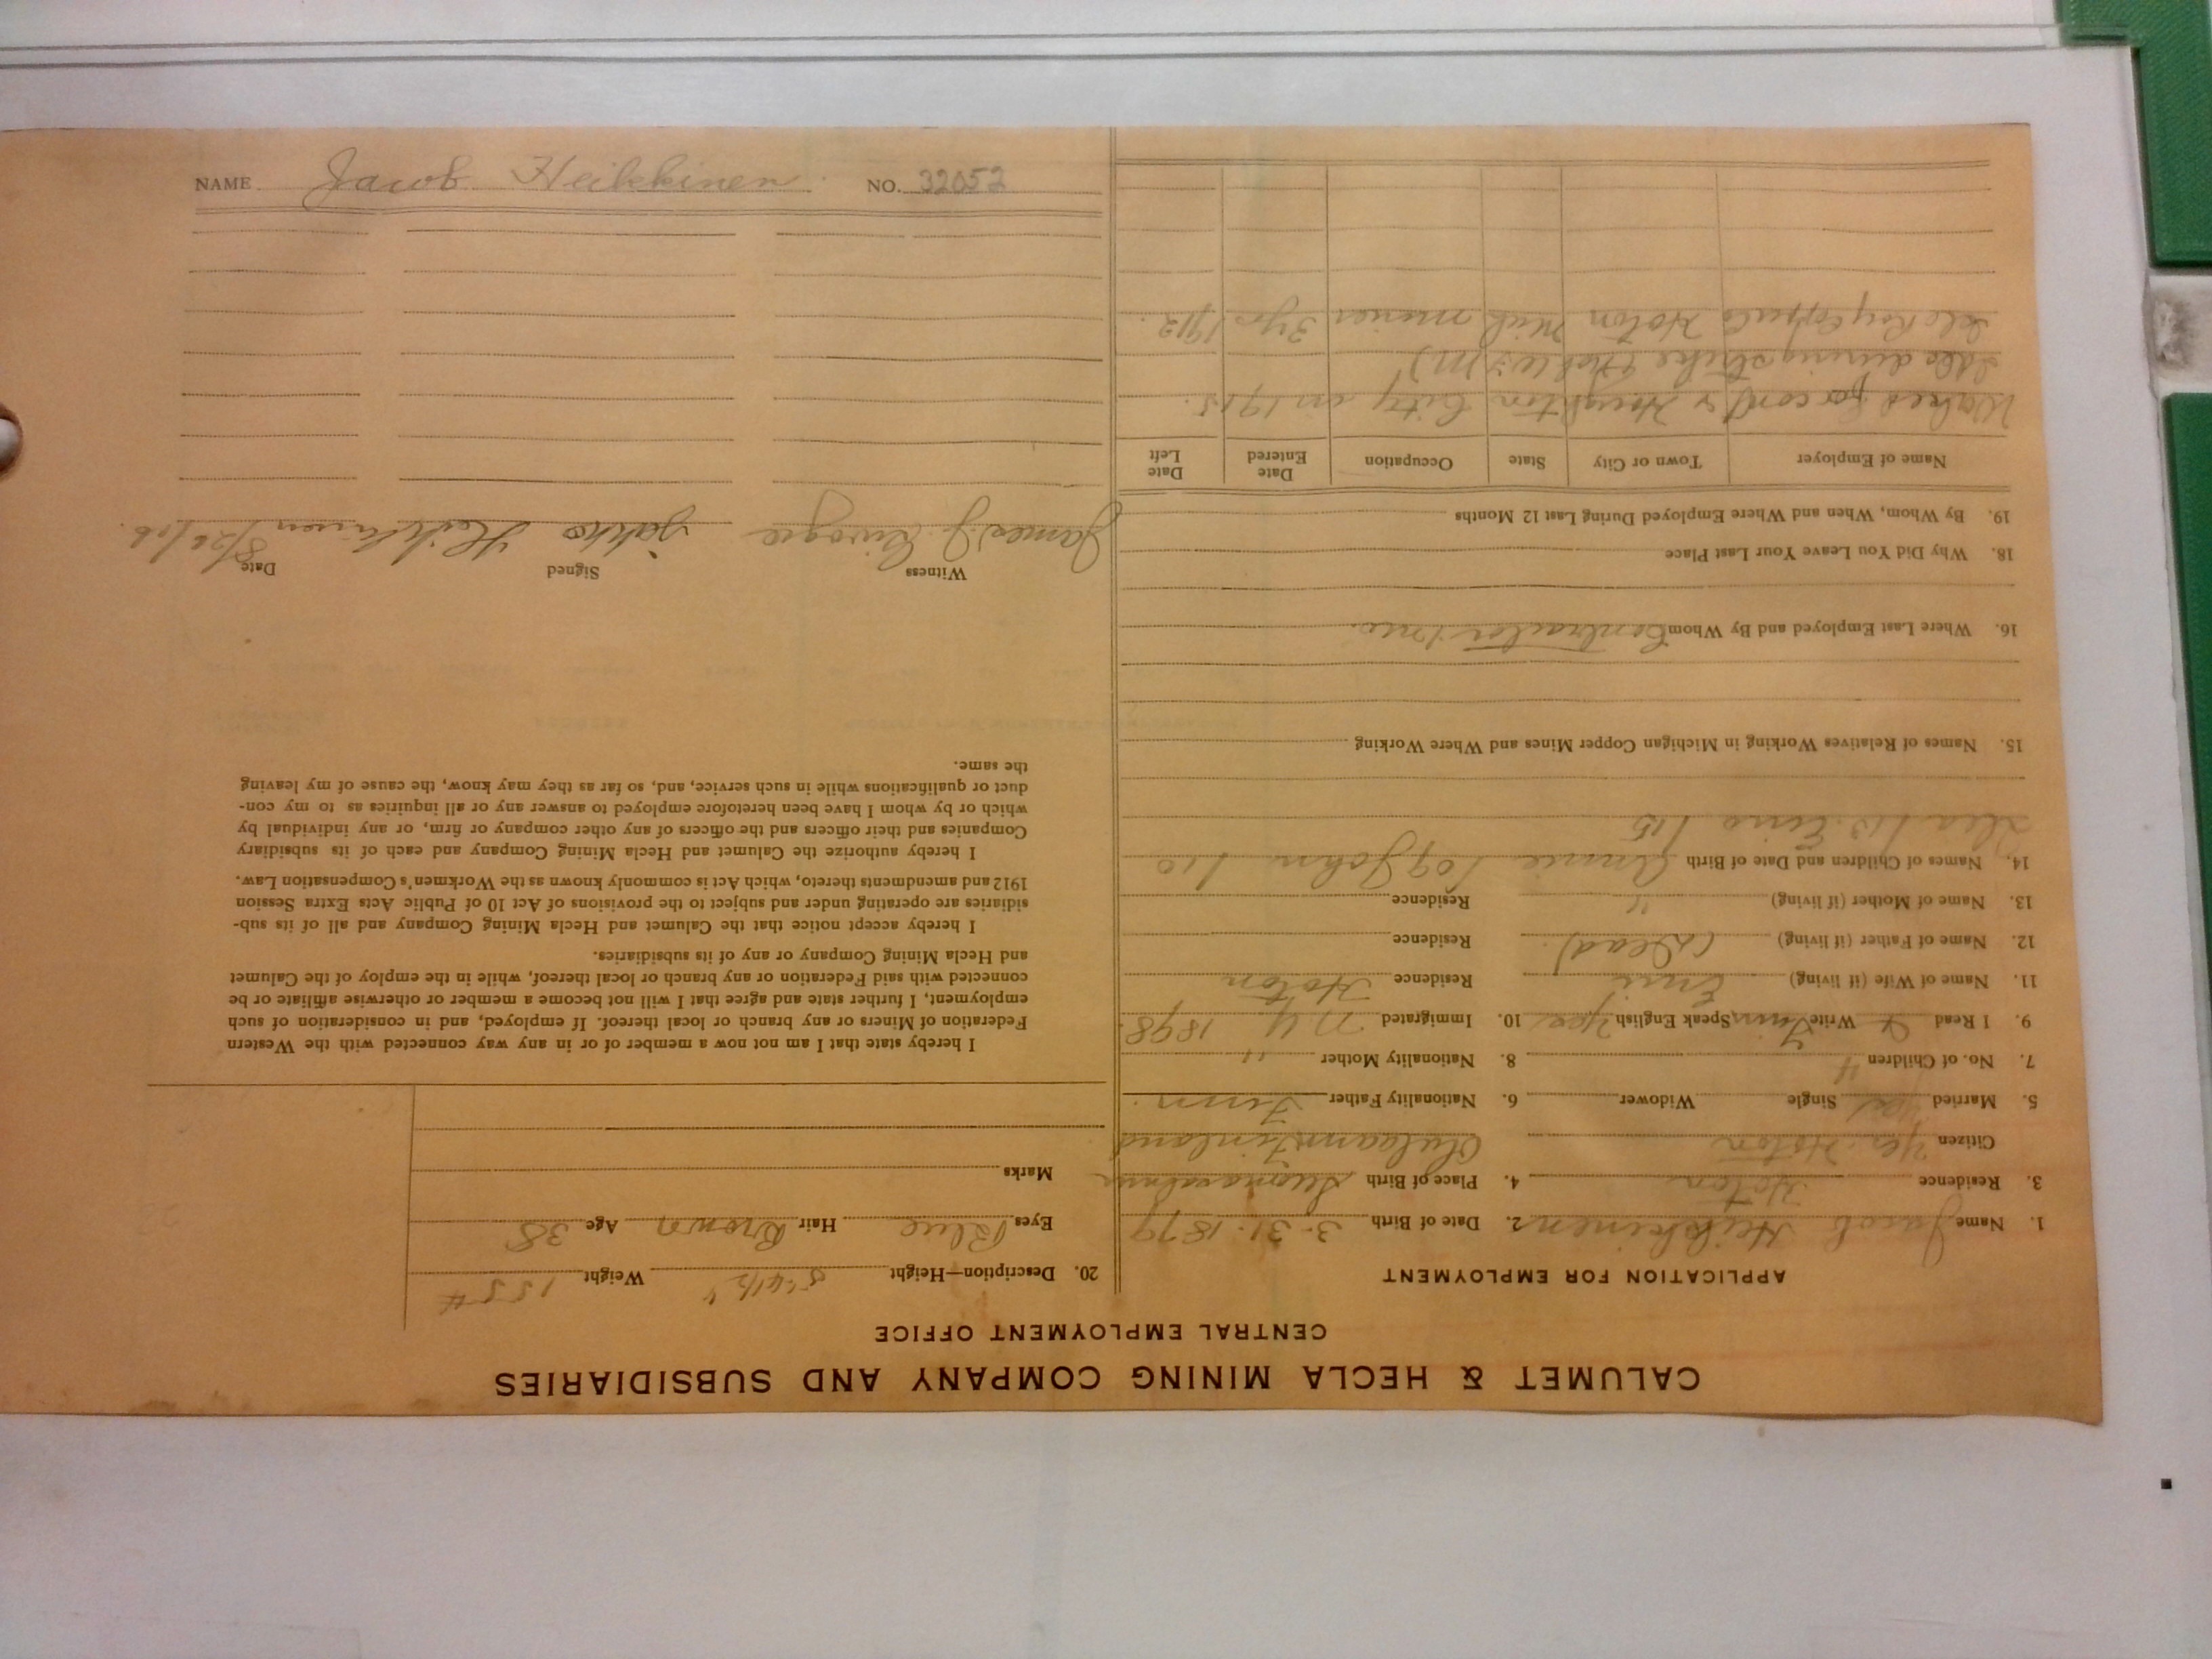 NAME Jacob Heikkinen NO. 32052
CALUMET & HECLA MINING COMPANY AND SUBSIDIARIES
CENTRAL EMPLOYMENT OFFICE
APPLICATION FOR EMPLOYMENT
1. Name Jacob Heikkinen 2. Date of Birth 3-31-1879
3. Residence Hoton 4. Place of Birth
Citizen Yes. Hoton Finland
5. Married Yes Single Widower 6. Nationality Father Finn.
7. No. of Children 4 8. Nationality Mother "
9. I Read & Write Finn Speak English Yes 10. Immigrated N Y 1898.
11. Name of Wife (if living) Residence Hoton
12. Name of Father (if living) (Dead). Residence
13. Name of Mother (if living) " Residence
14. Names of Children and Date of Birth Annie / 09 John / 10
/ 13. Eino / 15
15. Names of Relatives Working in Michigan Copper Mines and Where Working
16. Where Last Employed and By Whom Contractor
18. Why Did You Leave Your Last Place
19. By Whom, When and Where Employed During Last 12 Months
Name of Employer Town or City State Occupation Date Entered Date Left
Worked for cont r Houghton City in 1915.
Idle during strike (Not W F M)
Isle Royal Hoton Mich miner 3 yrs 1912.
20. Description—Height 5' 4 1/2" Weight 155 #
Eyes Blue Hair Brown Age 38
Marks
I hereby state that I am not now a member of or in any way connected with the Western
Federation of Miners or any branch or local thereof. If employed, and in consideration of such
employment, I further state and agree that I will not become a member or otherwise affiliate or be
connected with said Federation or any branch or local thereof, while in the employ of the Calumet
and Hecla Mining Company or any of its subsidiaries.
I hereby accept notice that the Calumet and Hecla Mining Company and all of its sub-
sidiaries are operating under and subject to the provisions of Act 10 of Public Acts Extra Session
1912 and amendments thereto, which Act is commonly known as the Workmen's Compensation Law.
I hereby authorize the Calumet and Hecla Mining Company and each of its subsidiary
Companies and their officers and the officers of any other company or firm, or any individual by
which or by whom I have been heretofore employed to answer any or all inquiries as to my con-
duct or qualifications while in such service, and, so far as they may know, the cause of my leaving
the same.
Witness Signed Date
James J. Jakko Heikkinen